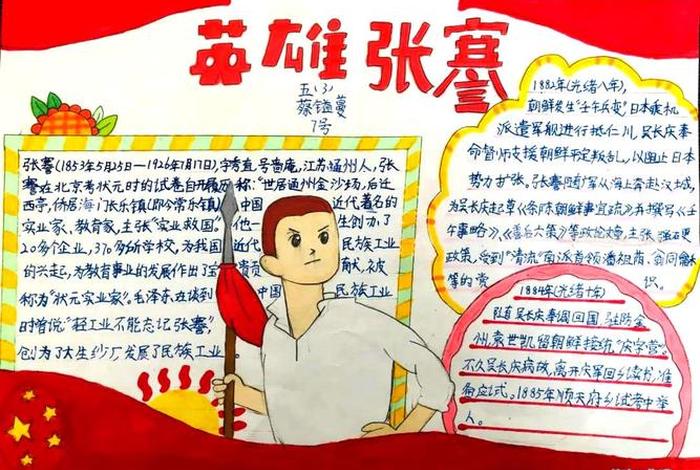 英雄张謇
五(3)
蔡镒蔓
7号
张謇(1853年5月25日—1926年7月17日),字季直,号啬庵,江苏通州人,张
謇在北京考状元时的试卷自开履历称:"世居通州金沙场,后迁
西亭,侨居海门长乐镇(即今常乐镇) 中国近代著名的
实业家、教育家,主张"实业救国。他一生创办了
20多个企业,370多所学校,为我国近代民族工业
的兴起,为教育事业的发展作出了宝贵贡献,被
称为"状元实业家"。毛泽东在谈到中国民族工业
时曾说:"轻工业不能忘记张謇"
创办了大生纱厂发展了民族工业
1882年(光绪八年),
朝鲜发生"壬午兵变",日本乘机
派遣军舰进行抵仁川,吴长庆奉
命督师支援朝鲜平定叛乱,以阻止日本
势力扩张。张謇随庆军从海上奔赴汉城,
为吴长庆起草《条陈朝鲜事宜疏》并撰写《壬
午事略》、《善后六策》等政论文章,主张强硬
政策,受到"清流"南派首领潘祖荫、翁同龢
等的赏识。
1884年(光绪十年)
随吴长庆奉调回国,驻防金
州,袁世凯留朝鲜接统"庆字营"。
不久吴长庆病故,离开庆军回乡读书,准
备应试。1885年顺天府乡试考中举
人。